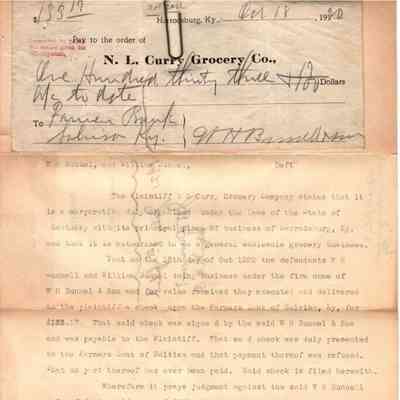 $ 133 17 Harrodsburg, Ky., Oct 18 1920
Pay to the order of
N. L. Curry Grocery Co.,
One Hundred thirty three & 17/100 Dollars
a/c to date
To Farmers Bank
Salvisa Ky.
W H and William Deft
The Plaintiff N L Curry Grocery Company states that it
is a corporation duly under the laws of the State of
Kentucky, with its principal place of business at Harrodsburg, Ky.
and that it is authorized to do a general wholesale grocery business.
That on the 18th day of Oct the defendants W H
and William doing business under the firm name of
W H & Son and for value received they executed and delivered
to the plaintiff a check upon the Farmers Bank of Salvisa, Ky. for
$133.17. That said check was signed by the said W H & Son
and was payable to the Plaintiff. That said check was duly presented
to the Farmers Bank of Salvisa and that payment thereof was refused.
That no part thereof has ever been paid. Said check is filed herewith.
Wherefore it prays judgment against the said W H